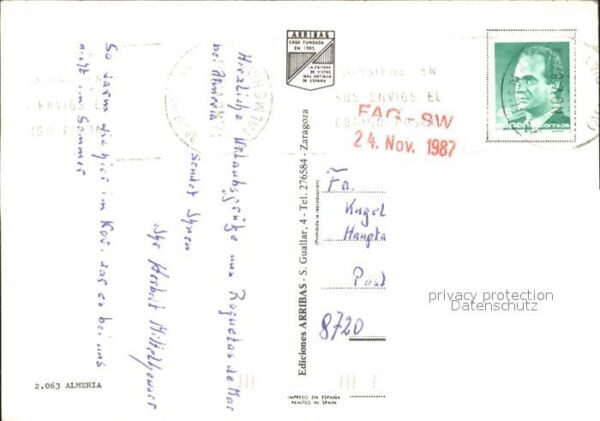 Herzliche Urlaubsgrüße aus Roquetas de Mar
bei Almeria
sendet Ihnen
Ihr Herbert
So warm wie hier im Nov. war es bei uns
nicht im Sommer
2.063 ALMERIA
ARRIBAS
CASA FUNDADA
EN 1905
LA EDITORA
DE VISTAS
MAS ANTIGUA
DE ESPAÑA
Ediciones ARRIBAS - S. Guallar, 4 - Tel. 276584 - Zaragoza
(Prohibida la reproducción)
IMPRESO EN ESPAÑA
PRINTED IN SPAIN
EN
SUS ENVIOS EL
CODIGO POSTAL
FAG - SW
24. Nov. 1987
correos
Fa.
Kugel
Haupt
Post
8720
privacy protection
Datenschutz